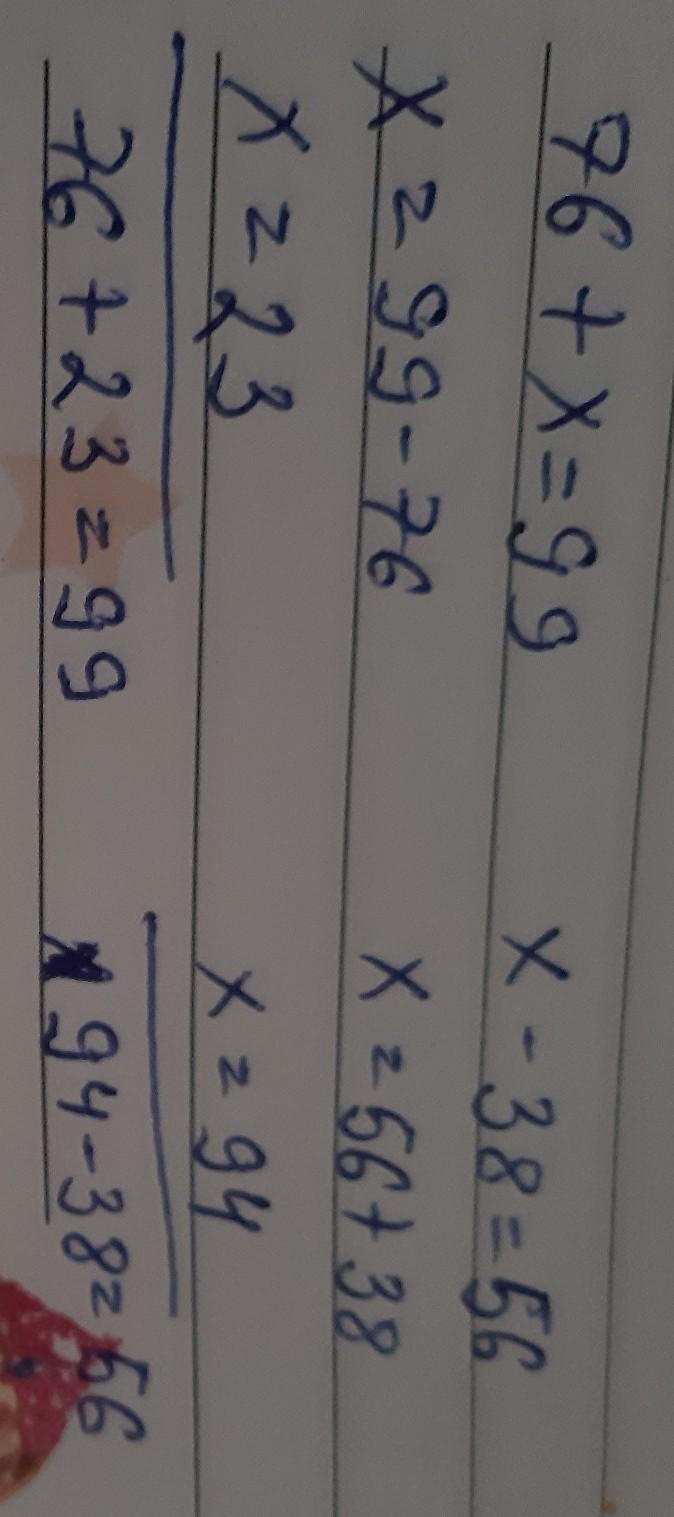 76 + x = 99
x = 99 - 76
x = 23
76 + 23 = 99
x - 38 = 56
x = 56 + 38
x = 94
94 - 38 = 56